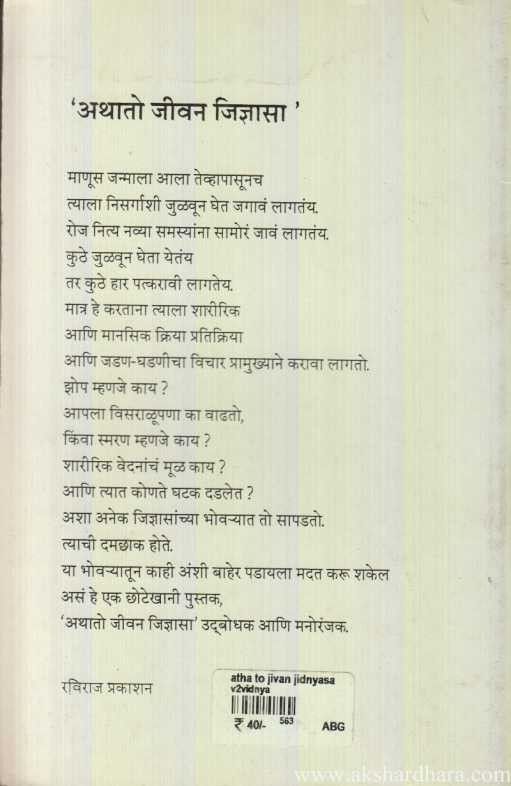 ‘अथातो जीवन जिज्ञासा ’
माणूस जन्माला आला तेव्हापासूनच
त्याला निसर्गाशी जुळवून घेत जगावं लागतंय.
रोज नित्य नव्या समस्यांना सामोरं जावं लागतंय.
कुठे जुळवून घेता येतंय
तर कुठे हार पत्करावी लागतेय.
मात्र हे करताना त्याला शारीरिक
आणि मानसिक क्रिया प्रतिक्रिया
आणि जडण-घडणीचा विचार प्रामुख्याने करावा लागतो.
झोप म्हणजे काय ?
आपला विसराळूपणा का वाढतो,
किंवा स्मरण म्हणजे काय ?
शारीरिक वेदनांचं मूळ काय ?
आणि त्यात कोणते घटक दडलेत ?
अशा अनेक जिज्ञासांच्या भोवऱ्यात तो सापडतो.
त्याची दमछाक होते.
या भोवऱ्यातून काही अंशी बाहेर पडायला मदत करू शकेल
असं हे एक छोटेखानी पुस्तक,
‘अथातो जीवन जिज्ञासा’ उद्‌बोधक आणि मनोरंजक.
रविराज प्रकाशन
atha to jivan jidnyasa
v2vidnya
₹ 40/- 563 ABG
www.akshardhara.com